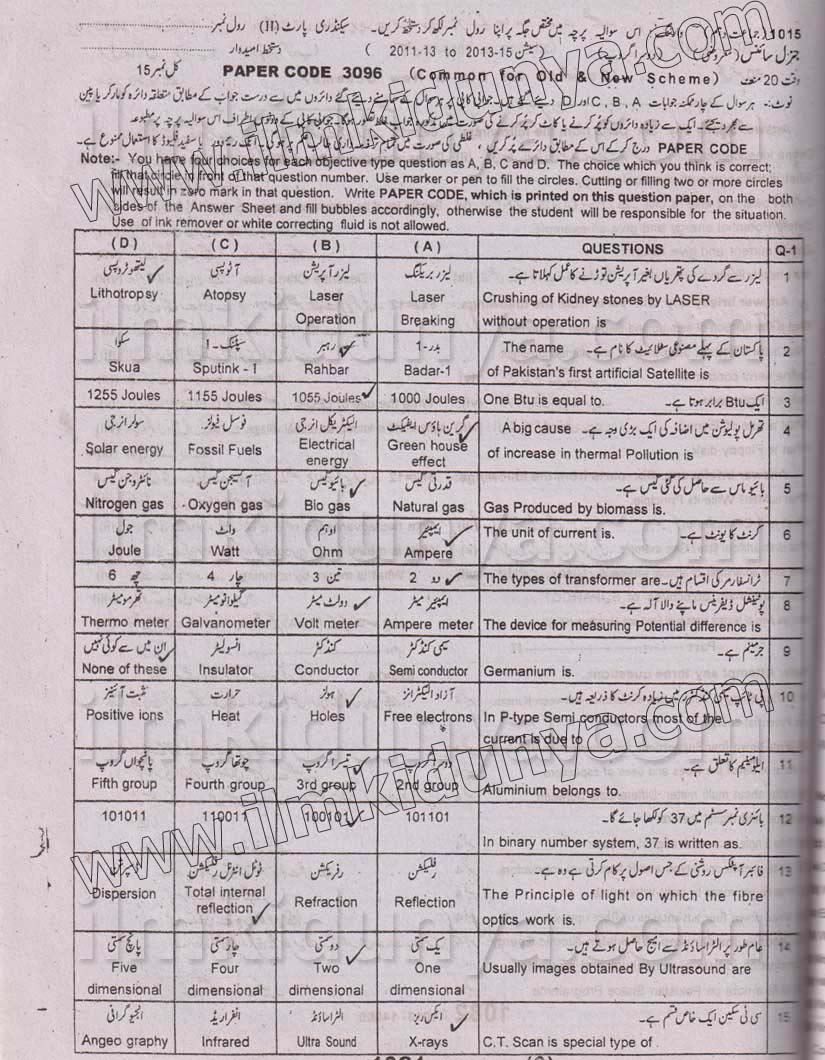 1015 (جماعت دہم) وارننگ:۔ اس سوالیہ پرچہ میں مختص جگہ پر اپنا رول نمبر لکھ کر دستخط کریں۔ سیکنڈری پارٹ (II) رول نمبر
جنرل سائنس (معروضی) (دوسرا گروپ) (سیشن 2013-15 to 2011-13) دستخط امیدوار
وقت 20 منٹ (Common for Old & New Scheme) PAPER CODE 3096 کل نمبر 15
نوٹ:۔ ہر سوال کے چار ممکنہ جوابات C, B, A اور D دیئے گئے ہیں۔ جوابی کاپی پر ہر سوال کے سامنے دیئے گئے دائروں میں سے درست جواب کے مطابق متعلقہ دائرہ کو مارکر یا پین
سے بھر دیجئے۔ ایک سے زیادہ دائروں کو پُر کرنے یا کاٹ کر پُر کرنے کی صورت میں مذکورہ جواب غلط تصور ہو گا۔ جوابی کاپی کے دونوں اطراف اس سوالیہ پرچہ پر مطبوعہ
PAPER CODE درج کر کے اس کے مطابق دائرے پُر کریں، غلطی کی صورت میں تمام تر ذمہ داری طالب علم پر ہو گی۔ انک ریموور یا سفید فلیوڈ کا استعمال ممنوع ہے۔
Note:- You have four choices for each objective type question as A, B, C and D. The choice which you think is correct;
fill that circle in front of that question number. Use marker or pen to fill the circles. Cutting or filling two or more circles
will result in zero mark in that question. Write PAPER CODE, which is printed on this question paper, on the both
sides of the Answer Sheet and fill bubbles accordingly, otherwise the student will be responsible for the situation.
Use of ink remover or white correcting fluid is not allowed.
(D) (C) (B) (A) QUESTIONS Q-1
لیتھوٹرپسی آٹوپسی لیزر آپریشن لیزر بریکنگ لیزر سے گردے کی پتھریاں بغیر آپریشن توڑنے کا عمل کہلاتا ہے۔ 1
Lithotropsy Atopsy Laser Laser Crushing of Kidney stones by LASER
Operation Breaking without operation is
سکوا سپٹنک-I رہبر بدر-1 The name پاکستان کے پہلے مصنوعی سٹلائیٹ کا نام ہے۔ 2
Skua Sputink - I Rahbar Badar-1 of Pakistan's first artificial Satellite is
1255 Joules 1155 Joules 1055 Joules 1000 Joules One Btu is equal to. ایک Btu برابر ہوتا ہے۔ 3
سولر انرجی فوسل فیولز الیکٹریکل انرجی گرین ہاؤس ایفیکٹ A big cause تھرمل پولیوشن میں اضافہ کی ایک بڑی وجہ ہے۔ 4
Solar energy Fossil Fuels Electrical Green house of increase in thermal Pollution is
energy effect
نائٹروجن گیس آکسیجن گیس بائیو گیس قدرتی گیس بائیو ماس سے حاصل کی گئی گیس ہے۔ 5
Nitrogen gas Oxygen gas Bio gas Natural gas Gas Produced by biomass is.
جول واٹ اوہم ایمپیئر The unit of current is. کرنٹ کا یونٹ ہے۔ 6
Joule Watt Ohm Ampere
چھ 6 چار 4 تین 3 دو 2 The types of transformer are ٹرانسفارمر کی اقسام ہیں۔ 7
تھرمومیٹر گیلوانومیٹر وولٹ میٹر ایمپیئر میٹر پوٹینشل ڈیفرینس ماپنے والا آلہ ہے۔ 8
Thermo meter Galvanometer Volt meter Ampere meter The device for measuring Potential difference is
ان میں سے کوئی نہیں انسولیٹر کنڈکٹر سیمی کنڈکٹر جرمینم ہے۔ 9
None of these Insulator Conductor Semi conductor Germanium is.
مثبت آئنز حرارت ہولز آزاد الیکٹرانز پی ٹائپ سیمی کنڈکٹر میں زیادہ کرنٹ کا ذریعہ ہیں۔ 10
Positive ions Heat Holes Free electrons In P-type Semi conductors most of the
current is due to
پانچواں گروپ چوتھا گروپ تیسرا گروپ دوسرا گروپ ایلومینیم کا تعلق ہے۔ 11
Fifth group Fourth group 3rd group 2nd group Aluminium belongs to.
101011 110011 100101 101101 بائنری نمبر سسٹم میں 37 کو لکھا جائے گا۔ 12
In binary number system, 37 is written as.
ڈسپرشن ٹوٹل انٹرنل رفلیکشن رفریکشن رفلیکشن فائبر آپٹکس روشنی کے جس اصول پر کام کرتی ہے وہ ہے۔ 13
Dispersion Total internal Refraction Reflection The Principle of light on which the fibre
reflection optics work is.
پانچ سمتی چار سمتی دو سمتی یک سمتی عام طور پر الٹراساؤنڈ سے امیج حاصل ہوتے ہیں۔ 14
Five Four Two One Usually images obtained By Ultrasound are
dimensional dimensional dimensional dimensional
انجیوگرافی انفراریڈ الٹراساؤنڈ ایکس ریز سی ٹی سکین ایک خاص قسم ہے۔ 15
Angeo graphy Infrared Ultra Sound X-rays C.T. Scan is special type of
www.ilmkidunya.com
www.ilmkidunya.com
ilmkidunya.com
ilmkidunya.com
ilmkidunya.com
ilmkidunya.com